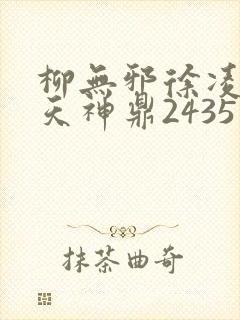 柳無邪徐凌
天神鼎2435
抹茶曲奇